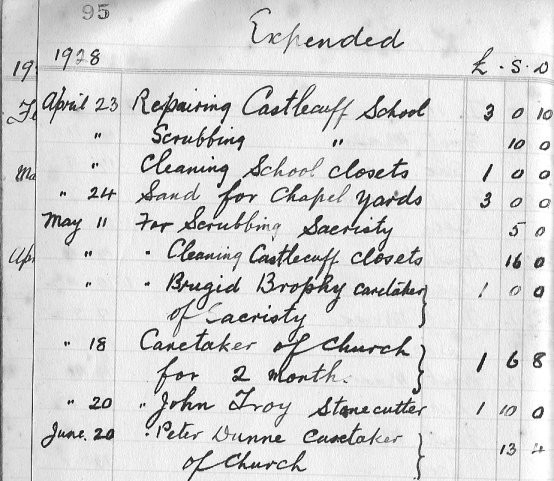 95
Expended
1928 £ . S . D
April 23 Repairing Castlecuff School 3 0 10
" Scrubbing " 10 0
" Cleaning School closets 1 0 0
" 24 Sand for Chapel yards 3 0 0
May 11 For Scrubbing Sacristy 5 0
" " Cleaning Castlecuff closets 16 0
" " Brugid Brophy caretaker 1 0 0
of Sacristy
" 18 Caretaker of Church
for 2 month. 1 6 8
" 20 " John Troy Stonecutter 1 10 0
June. 20 " Peter Dunne Caretaker
of Church 13 4